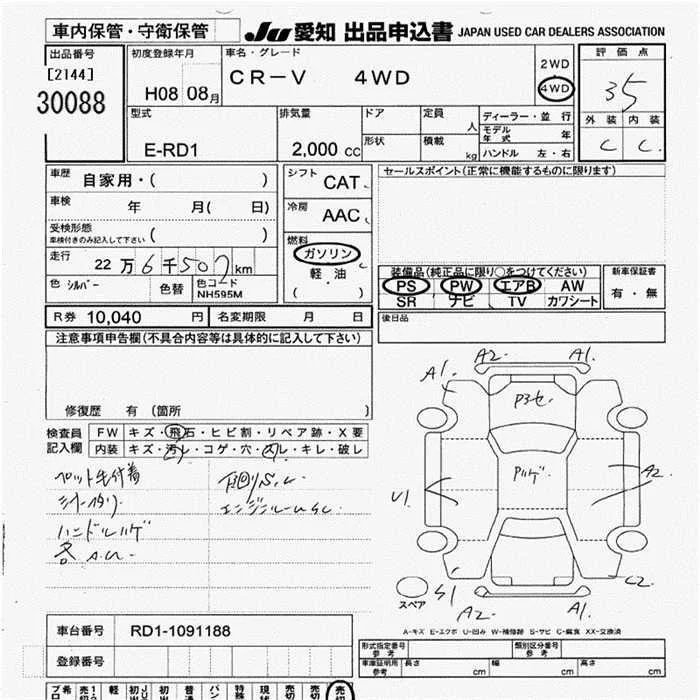 車内保管・守衛保管
JU 愛知 出品申込書 JAPAN USED CAR DEALERS ASSOCIATION
出品番号
[2144]
30088
初度登録年月
H08 08月
車名・グレード
CR-V 4WD
2WD
4WD
評価点
35
外装 内装
C C
型式
E-RD1
排気量
2,000 cc
ドア
形状
定員
人
積載
kg
ディーラー・並 行
モデル年式 年
ハンドル 左・右
車歴
自家用・( )
車検
年 月( 日)
受検形態
車検付きのみ記入して下さい ( )
走行
22万6千507km
色 シルバー 色替 色コード
NH595M
シフト
CAT
冷房
AAC
燃料
ガソリン
軽・油
( )
セールスポイント(正常に機能するものに限ります)
装備品(純正品に限り○をつけてください)
PS PW エアB AW
SR ナビ TV カワシート
新車保証書
有・無
後日品
R券 10,040 円
名変期限 月 日
注意事項申告欄(不具合内容等は具体的に記入して下さい)
修復歴 有 (箇所 )
検査員
記入欄
FW キズ・飛石・ヒビ割・リペア跡・X要
内装 キズ・汚レ・コゲ・穴・スレ・キレ・破レ
ペット毛付着
ハンドルハゲ
各 A.U.
下回りS.
エンジンルーム
A2 A1
A1
Pハゲ
U1
A2
C2
S1
A2 A1
スペア
A-キズ E-エクボ U-凹み W-補修跡 S-サビ C-腐食 XX-交換済
車台番号 RD1-1091188
登録番号
形式指定番号
参考
類別区分番号
参考
車庫証明用
参考
長さ cm 幅 cm 高さ cm